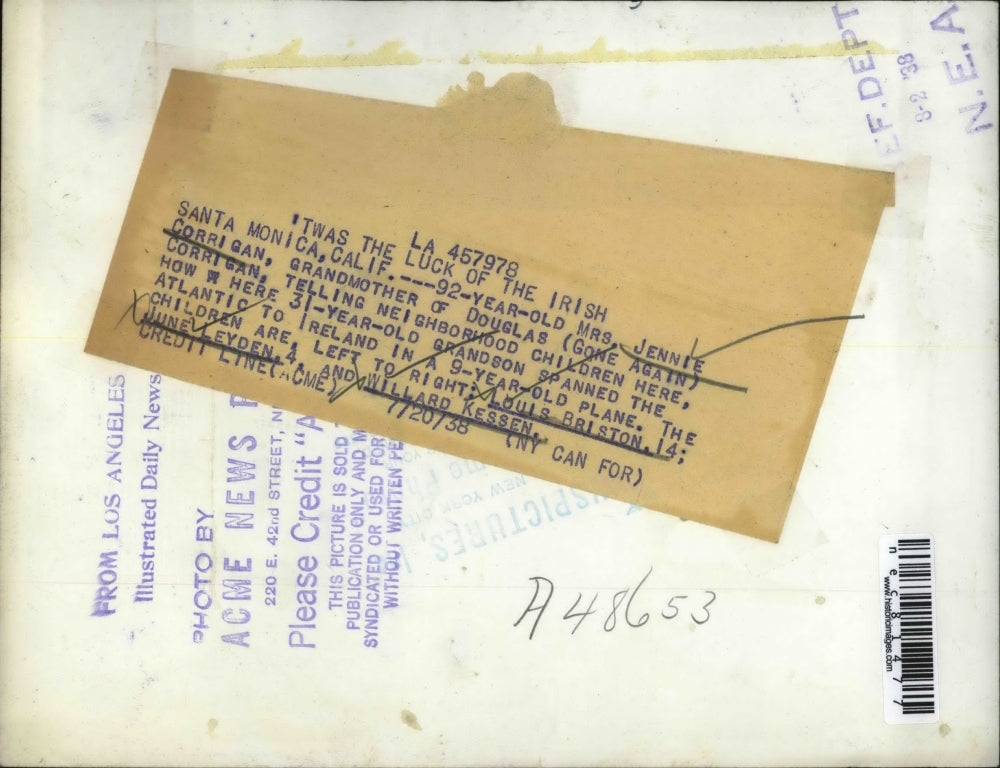 LA 457978
'TWAS THE LUCK OF THE IRISH
SANTA MONICA, CALIF.---92-YEAR-OLD MRS. JENNIE
CORRIGAN, GRANDMOTHER OF DOUGLAS (GONE AGAIN)
CORRIGAN, TELLING NEIGHBORHOOD CHILDREN HERE,
HOW HERE 31-YEAR-OLD GRANDSON SPANNED THE
ATLANTIC TO IRELAND IN A 9-YEAR-OLD PLANE. THE
CHILDREN ARE, LEFT TO RIGHT: LOUIS BRISTON, 14;
JUNE LEYDEN, 4, AND WILLARD KESSEN.
CREDIT LINE (ACME) 7/20/38 (NY CAN FOR)
EF. DEPT
8-2 '38
N.E.A
FROM LOS ANGELES
Illustrated Daily News
PHOTO BY
ACME NEWS P
220 E. 42nd STREET, N
Please Credit "A
THIS PICTURE IS SOLD
PUBLICATION ONLY AND M
SYNDICATED OR USED FOR
WITHOUT WRITTEN PE
SPICTURES,
NEW YORK CITY
A48653
nec81477
www.historicimages.com